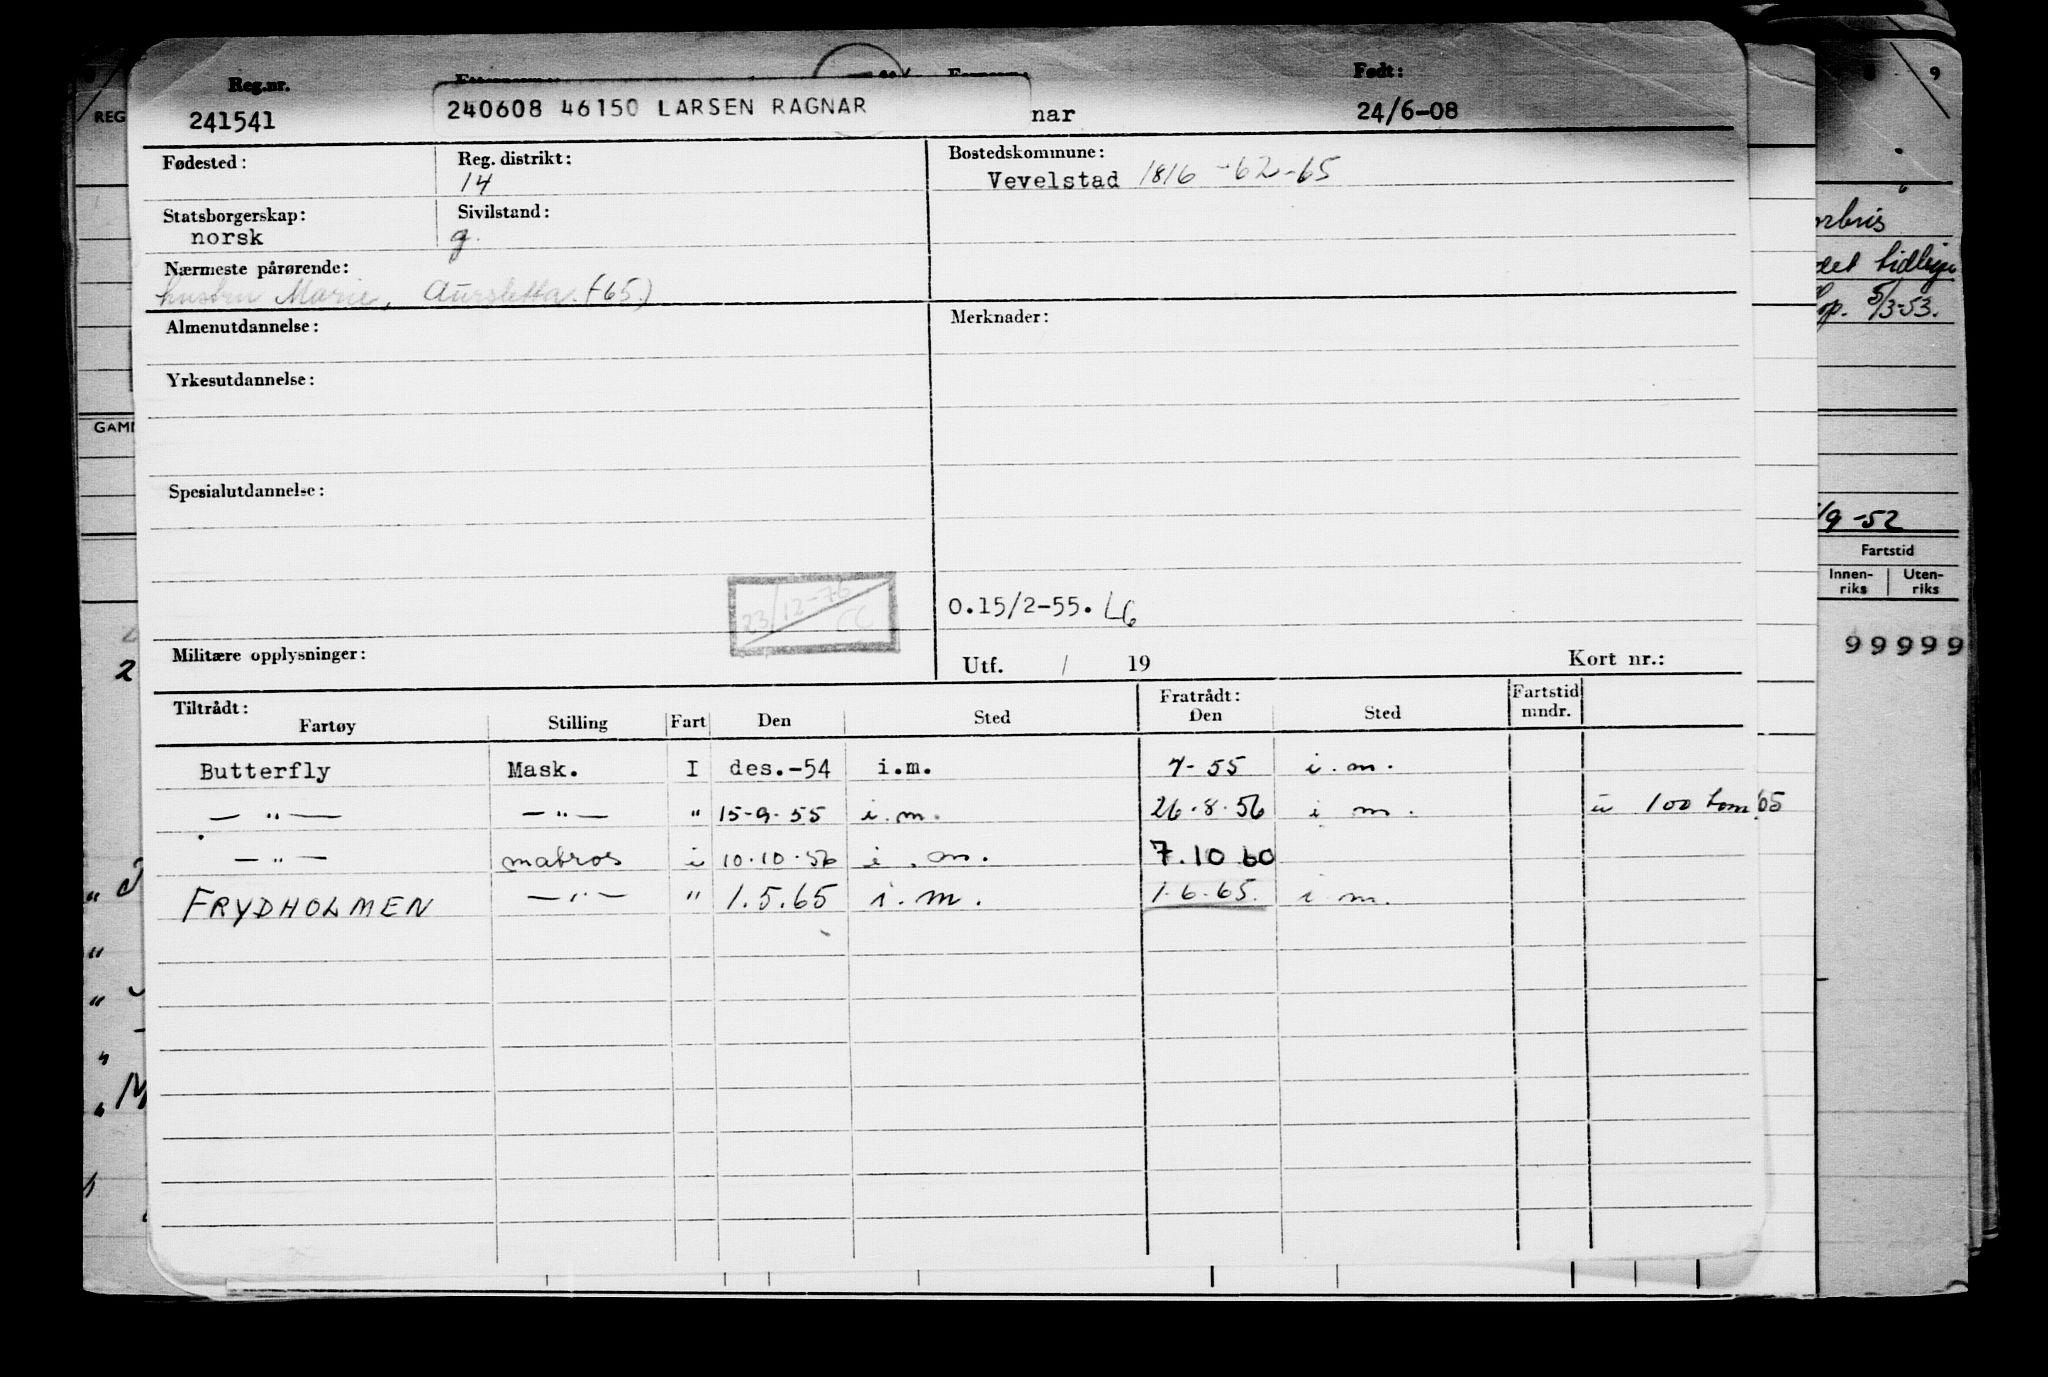 Reg.nr. Født:
241541 240608 46150 LARSEN RAGNAR nar 24/6-08
Fødested: Reg. distrikt: Bostedskommune:
14 Vevelstad 1816 -62-65
Statsborgerskap: Sivilstand:
norsk g.
Nærmeste pårørende:
hustru Marie, Aursletta (65)
Almenutdannelse: Merknader:
Yrkesutdannelse:
Spesialutdannelse:
23/12-76 CC
O.15/2-55. LG
Militære opplysninger: Utf. / 19 Kort nr.:
Tiltrådt: Fratrådt: Fartstid
Fartøy Stilling Fart Den Sted Den Sted mndr.
Butterfly Mask. I des.-54 i.m. 7-55 i.m.
— " — — " — " 15-9-55 i.m. 26.8.56 i m. 100
— " — matros i 10.10.56 i.m. 7.10 60
FRYDHOLMEN — " — " 1.5.65 i.m. 1.6.65. i m.
REG
GAMI
9
det tidlige
5/3-53.
/9-52
Fartstid
Innen-riks Uten-riks
99999